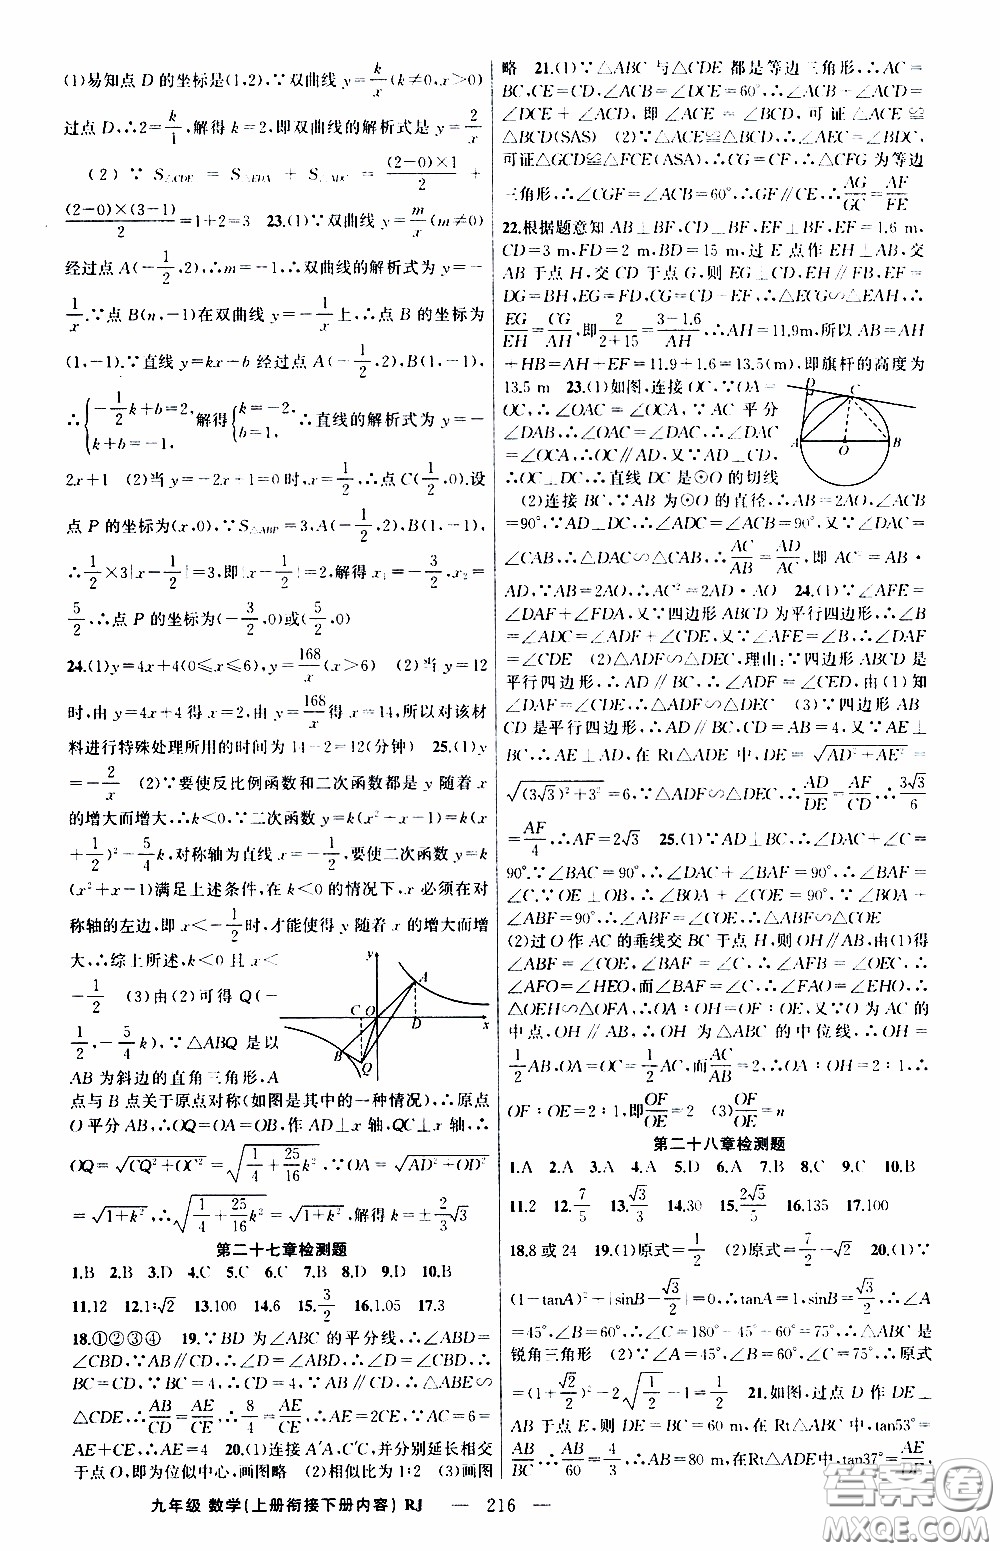 (1)易知点 D 的坐标是(1,2),∵双曲线 y=k/x(k≠0,x>0)
过点 D,∴2=k/1,解得 k=2,即双曲线的解析式是 y=2/x
(2)∵S△CDE=S△EDA+S△ADC=(2-0)×1/2+
(2-0)×(3-1)/2=1+2=3 23.(1)∵双曲线 y=m/x(m≠0)
经过点 A(-1/2,2),∴m=-1,∴双曲线的解析式为 y=-
1/x.∵点 B(n,-1)在双曲线 y=-1/x上,∴点 B 的坐标为
(1,-1).∵直线 y=kx+b 经过点 A(-1/2,2),B(1,-1),
∴{-1/2k+b=2, k+b=-1, 解得{k=-2, b=1, ∴直线的解析式为 y=-
2x+1 (2)当 y=-2x+1=0 时,x=1/2,∴点 C(1/2,0).设
点 P 的坐标为(x,0),∵S△ABP=3,A(-1/2,2),B(1,-1),
∴1/2×3|x-1/2|=3,即|x-1/2|=2,解得 x₁=-3/2,x₂=
5/2,∴点 P 的坐标为(-3/2,0)或(5/2,0)
24.(1)y=4x+4(0≤x≤6),y=168/x(x>6) (2)当 y=12
时,由 y=4x+4 得 x=2,由 y=168/x得 x=14,所以对该材
料进行特殊处理所用的时间为 14-2=12(分钟) 25.(1)y
=-2/x (2)∵要使反比例函数和二次函数都是 y 随着 x
的增大而增大,∴k<0.∵二次函数 y=k(x²+x-1)=k(x
+1/2)²-5/4k,对称轴为直线 x=-1/2,要使二次函数 y=k
(x²+x-1)满足上述条件,在 k<0 的情况下,x 必须在对
称轴的左边,即 x<-1/2时,才能使得 y 随着 x 的增大而增
大,∴综上所述,k<0 且 x<
-1/2 (3)由(2)可得 Q(-
1/2,-5/4k),∵△ABQ 是以
AB为斜边的直角三角形,A
点与 B 点关于原点对称(如图是其中的一种情况),∴原点
O 平分 AB,∴OQ=OA=OB,作 AD⊥x 轴,QC⊥x 轴,∴
OQ=√(CQ²+OC²)=√(1/4+25/16k²),∵OA=√(AD²+OD²)
=√(1+k²),∴√(1/4+25/16k²)=√(1+k²),解得 k=±2/3√3
第二十七章检测题
1.B 2.B 3.D 4.C 5.C 6.C 7.B 8.D 9.D 10.B
11.12 12.1∶√2 13.100 14.6 15.3/2 16.1.05 17.3
18.①②③④ 19.∵BD 为∠ABC 的平分线,∴∠ABD=
∠CBD,∵AB∥CD,∴∠D=∠ABD,∴∠D=
∠CBD,∴BC=CD.∵BC=4,∴CD=4,∵AB∥CD,∴△ABE∽
△CDE,∴AB/CD=AE/CE,∴8/4=AE/CE,∴AE=2CE,∵AC=6=
AE+CE,∴AE=4 20.(1)连接 A'A,C'C,并分别延长相交
于点 O,即为位似中心,画图略 (2)相似比为 1∶2 (3)画图
略 21.(1)∵△ABC 与△CDE 都是等边三角形,∴AC=
BC,CE=CD,∠ACB=∠DCE=60°,∴∠ACB+∠ACD=
∠DCE+∠ACD,即∠ACE=∠BCD,可证△ACE≌
△BCD(SAS) (2)∵△ACE≌△BCD,∴∠AEC=∠BDC,
可证△GCD≌△FCE(ASA),∴CG=CF,∴△CFG 为等边
三角形,∴∠CGF=∠ACB=60°,∴GF∥CE,∴AG/GC=AF/FE
22.根据题意知 AB⊥BF,CD⊥BF,EF⊥BF,EF=1.6 m,
CD=3 m,FD=2 m,BD=15 m,过 E 点作 EH⊥AB,交
AB 于点 H,交 CD 于点 G,则 EG⊥CD,EH∥FB,EF=
DG=BH,EG=FD,CG=CD-EF,∴△ECG∽△EAH,∴
EG/EH=CG/AH,即2/(2+15)=(3-1.6)/AH,∴AH=11.9m,所以 AB=AH
+HB=AH+EF=11.9+1.6=13.5(m),即旗杆的高度为
13.5 m 23.(1)如图,连接 OC,∵OA=
OC,∴∠OAC=∠OCA,∵AC 平分
∠DAB,∴∠OAC=∠DAC,∴∠DAC=
∠OCA,∴OC∥AD,∵AD⊥CD,
∴OC⊥DC,∴直线 DC 是⊙O 的切线
(2)连接 BC,∵AB 为⊙O 的直径,∴AB=2AO,∠ACB
=90°,∵AD⊥DC,∴∠ADC=∠ACB=90°,又∵∠DAC
=∠CAB,∴△DAC∽△CAB,∴AC/AB=AD/AC,即 AC²=AB·
AD,∵AB=2AO,∴AC²=2AD·AO 24.(1)∵∠AFE=
∠DAF+∠FDA,又∵四边形 ABCD 为平行四边形,∴∠B
=∠ADC=∠ADF+∠CDE,又∵∠AFE=∠B,∴∠DAF
=∠CDE (2)△ADF∽△DEC,理由:∵四边形 ABCD 是
平行四边形,∴AD∥BC,∴∠ADF=∠CED,由(1)知
∠DAF=∠CDE,∴△ADF∽△DEC (3)∵四边形 AB
CD 是平行四边形,∴AD∥BC,CD=AB=4,又∵AE⊥
BC,∴AE⊥AD,在 Rt△ADE 中,DE=√(AD²+AE²)=
√((3√3)²+3²)=6,∵△ADF∽△DEC,∴AD/DE=AF/CD,∴3√3/6
=AF/4,∴AF=2√3 25.(1)∵AD⊥BC,∴∠DAC+∠C=
90°.∵∠BAC=90°,∴∠DAC+∠BAF=90°,∴∠BAF=
∠C.∵OE⊥OB,∴∠BOA+∠COE=90°,∵∠BOA+
∠ABF=90°,∴∠ABF=∠COE,∴△ABF∽△COE
(2)过 O 作 AC 的垂线交 BC 于点 H,则 OH∥AB,由(1)得
∠ABF=∠COE,∠BAF=∠C,∴∠AFB=∠OEC,∴
∠AFO=∠HEO,而∠BAF=∠C,∴∠FAO=∠EHO,∴
△OEH∽△OFA,∴OA∶OH=OF∶OE,又∵O 为 AC 的
中点,OH∥AB,∴OH 为△ABC 的中位线,∴OH=
1/2AB,OA=OC=1/2AC,而AC/AB=2,∴OA∶OH=2∶1,∴
OF∶OE=2∶1,即OF/OE=2 (3)OF/OE=n
第二十八章检测题
1.A 2.A 3.A 4.A 5.D 6.A 7.B 8.C 9.C 10.B
11.2 12.7/5 13.√3/3 14.30 15.2√5/5 16.135 17.100
18.8或24 19.(1)原式=1/2 (2)原式=7/2-√2 20.(1)∵
(1-tanA)²+|sinB-√3/2|=0,∴tanA=1,sinB=√3/2,∴∠A
=45°,∠B=60°,∴∠C=180°-45°-60°=75°,∴△ABC 是
锐角三角形 (2)∵∠A=45°,∠B=60°,∠C=75°,∴原式
=(1+√2/2)²-2√(1/4)-1=1/2 21.如图,过点 D 作 DE⊥
AB 于点 E,则 DE=BC=60 m,在 Rt△ABC 中,tan53°=
AB/BC,∴AB/60=4/3,∴AB=80 m,在Rt△ADE 中,tan37°=AE/DE
y
A
C O D x
B Q
D C
A O B
九年级 数学(上册衔接下册内容) RJ — 216 —
答案圈
MXQE.COM